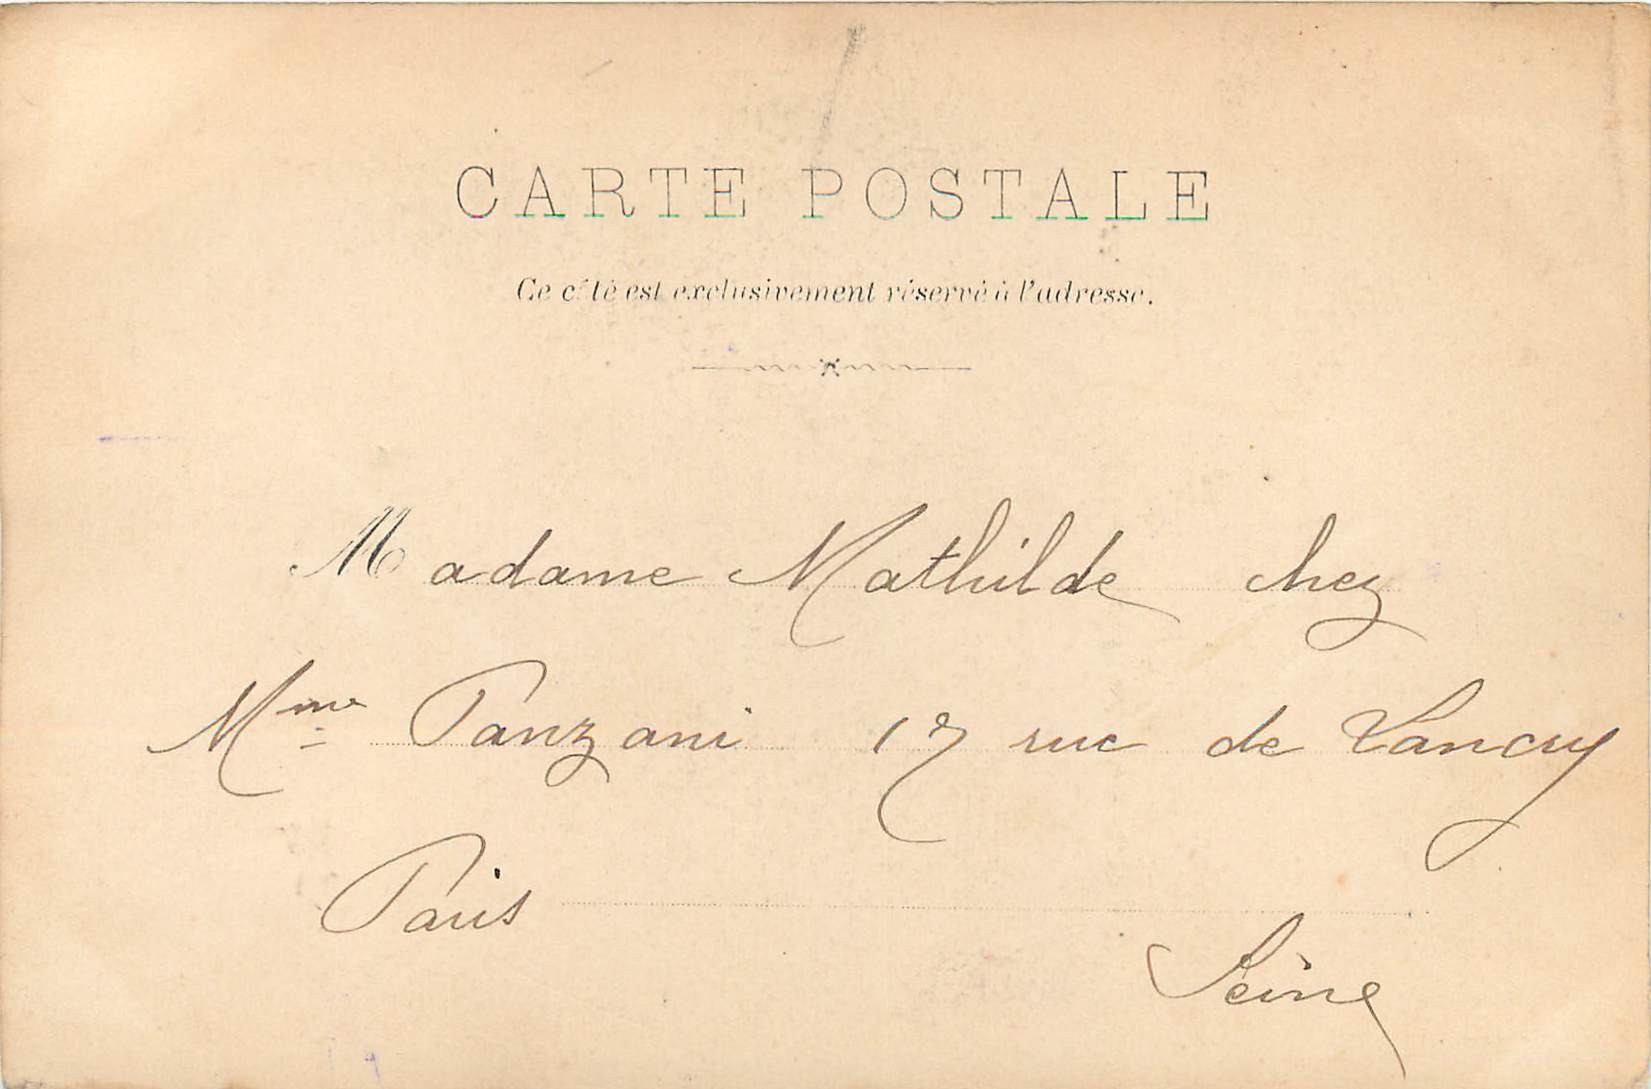 CARTE POSTALE
Ce côté est exclusivement réservé à l'adresse.
Madame Mathilde chez
Mme Panzani 17 rue de Lancry
Paris
Seine